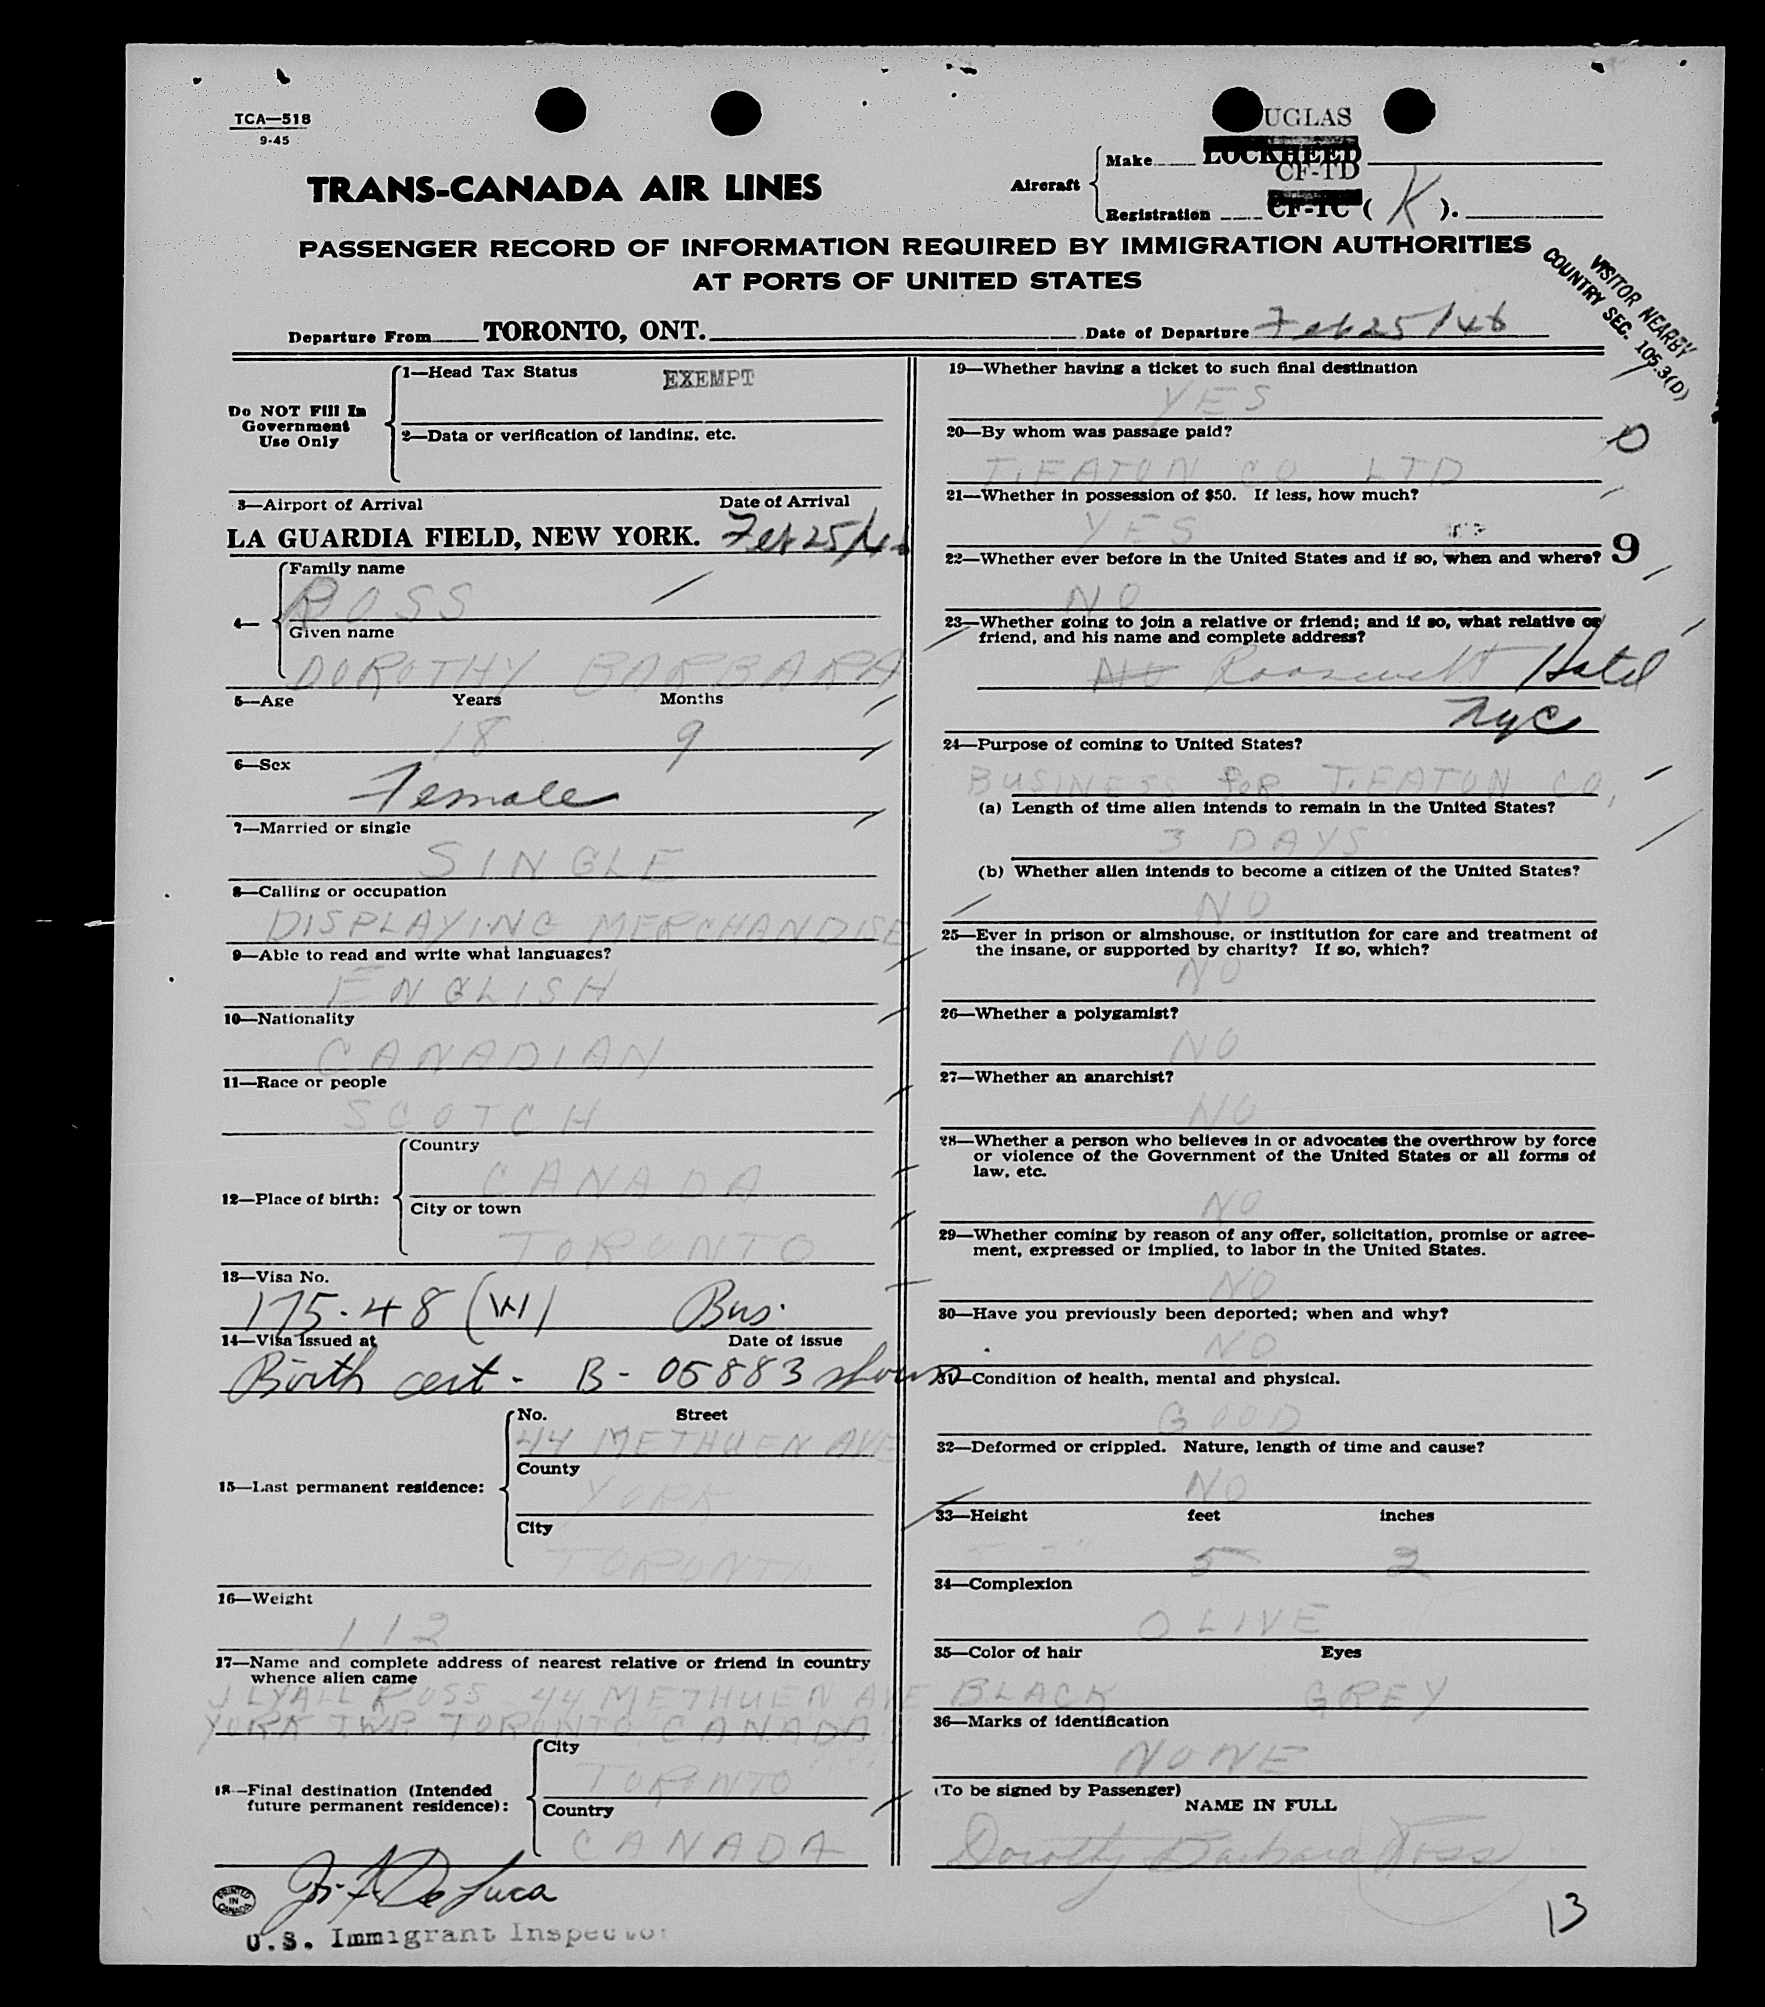 TCA—518
9-45
UGLAS
Make LOCKHEED
CF-TD
Aircraft
Registration CF-TC ( K ).
TRANS-CANADA AIR LINES
PASSENGER RECORD OF INFORMATION REQUIRED BY IMMIGRATION AUTHORITIES
AT PORTS OF UNITED STATES
VISITOR NEARBY
COUNTRY SEC. 105.3(D)
Departure From TORONTO, ONT. Date of Departure Feb 25/46
Do NOT Fill In
Government
Use Only
1—Head Tax Status EXEMPT
2—Data or verification of landing, etc.
3—Airport of Arrival Date of Arrival
LA GUARDIA FIELD, NEW YORK. Feb 25/46
4—
Family name
ROSS
Given name
DOROTHY BARBARA
5—Age Years Months
18 9
6—Sex
Female
7—Married or single
SINGLE
8—Calling or occupation
DISPLAYING MERCHANDISE
9—Able to read and write what languages?
ENGLISH
10—Nationality
CANADIAN
11—Race or people
SCOTCH
12—Place of birth:
Country
CANADA
City or town
TORONTO
13—Visa No.
175-48 (W) Bus.
14—Visa issued at Date of issue
Birth cert - B - 05883 shown
15—Last permanent residence:
No. Street
44 METHUEN AVE
County
YORK
City
TORONTO
16—Weight
112
17—Name and complete address of nearest relative or friend in country
whence alien came
J LYALL ROSS 44 METHUEN AVE
YORK TWP. TORONTO CANADA
18—Final destination (Intended
future permanent residence):
City
TORONTO
Country
CANADA
De Luca
U.S. Immigrant Inspector
PRINTED
IN
CANADA
19—Whether having a ticket to such final destination
YES
20—By whom was passage paid?
0
T. EATON CO LTD
21—Whether in possession of $50. If less, how much?
YES
22—Whether ever before in the United States and if so, when and where? 9
NO
23—Whether going to join a relative or friend; and if so, what relative or
friend, and his name and complete address?
No Roosevelt Hotel
NYC
24—Purpose of coming to United States?
BUSINESS FOR T. EATON CO.
(a) Length of time alien intends to remain in the United States?
3 DAYS
(b) Whether alien intends to become a citizen of the United States?
NO
25—Ever in prison or almshouse, or institution for care and treatment of
the insane, or supported by charity? If so, which?
NO
26—Whether a polygamist?
NO
27—Whether an anarchist?
NO
28—Whether a person who believes in or advocates the overthrow by force
or violence of the Government of the United States or all forms of
law, etc.
NO
29—Whether coming by reason of any offer, solicitation, promise or agree-
ment, expressed or implied, to labor in the United States.
NO
30—Have you previously been deported; when and why?
NO
31—Condition of health, mental and physical.
GOOD
32—Deformed or crippled. Nature, length of time and cause?
NO
33—Height feet inches
5 2
34—Complexion
OLIVE
35—Color of hair Eyes
BLACK GREY
36—Marks of identification
NONE
(To be signed by Passenger)
NAME IN FULL
Dorothy Barbara Ross
13